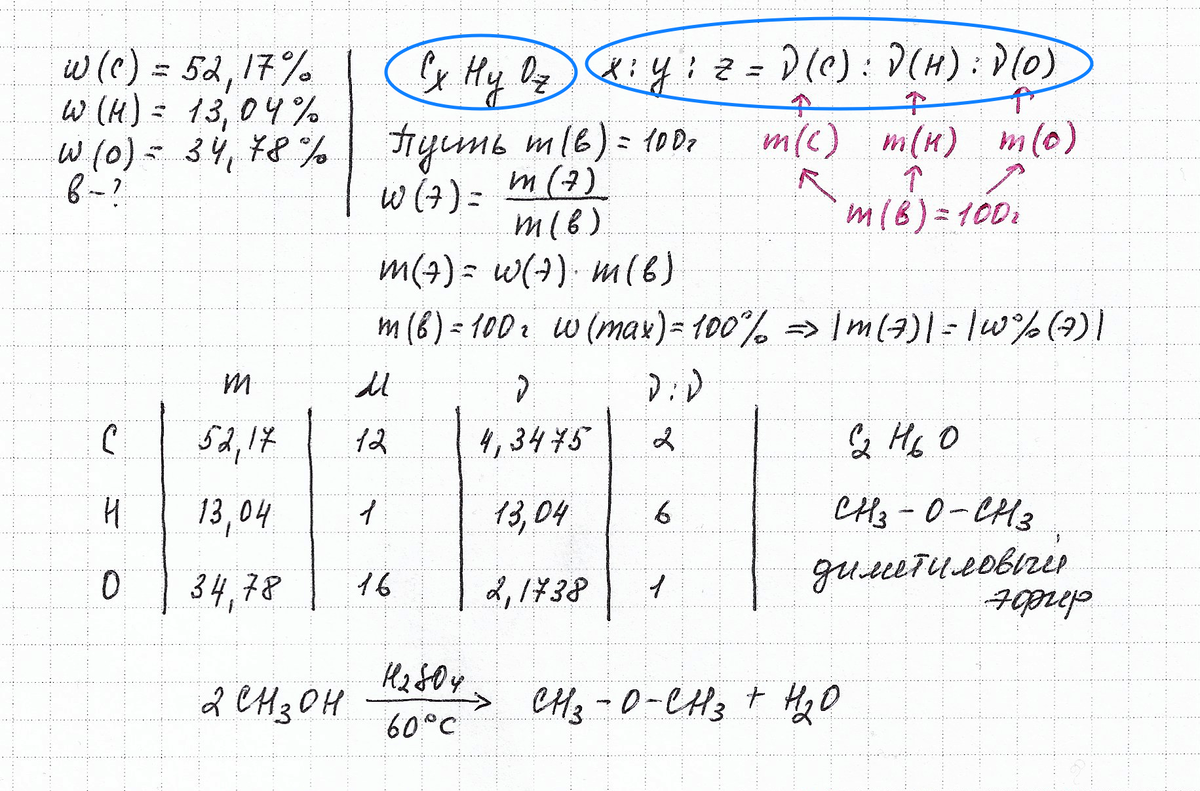 w(C) = 52,17%
w(H) = 13,04%
w(O) = 34,78%
в-?
CxHyOz
x : y : z = ν(C) : ν(H) : ν(O)
↑ ↑ ↑
m(C) m(H) m(O)
↖ ↑ ↗
m(в) = 100г
Пусть m(в) = 100г
w(э) = m(э) / m(в)
m(э) = w(э) · m(в)
m(в) = 100г w(max) = 100% ⇒ |m(э)| = |w%(э)|
m M ν ν:ν
C 52,17 12 4,3475 2 C₂H₆O
H 13,04 1 13,04 6 CH₃-O-CH₃
O 34,78 16 2,1738 1 диметиловый
эфир
2CH₃OH H₂SO₄ → 60°C CH₃-O-CH₃ + H₂O